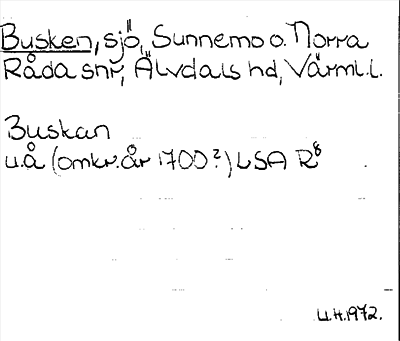 Busken, sjö, Sunnemo o. Norra
Råda snr, Älvdals hd, Värml.l.
Buskan
u.å (omkr.år 1700?) LSA R8
U.H.1972.